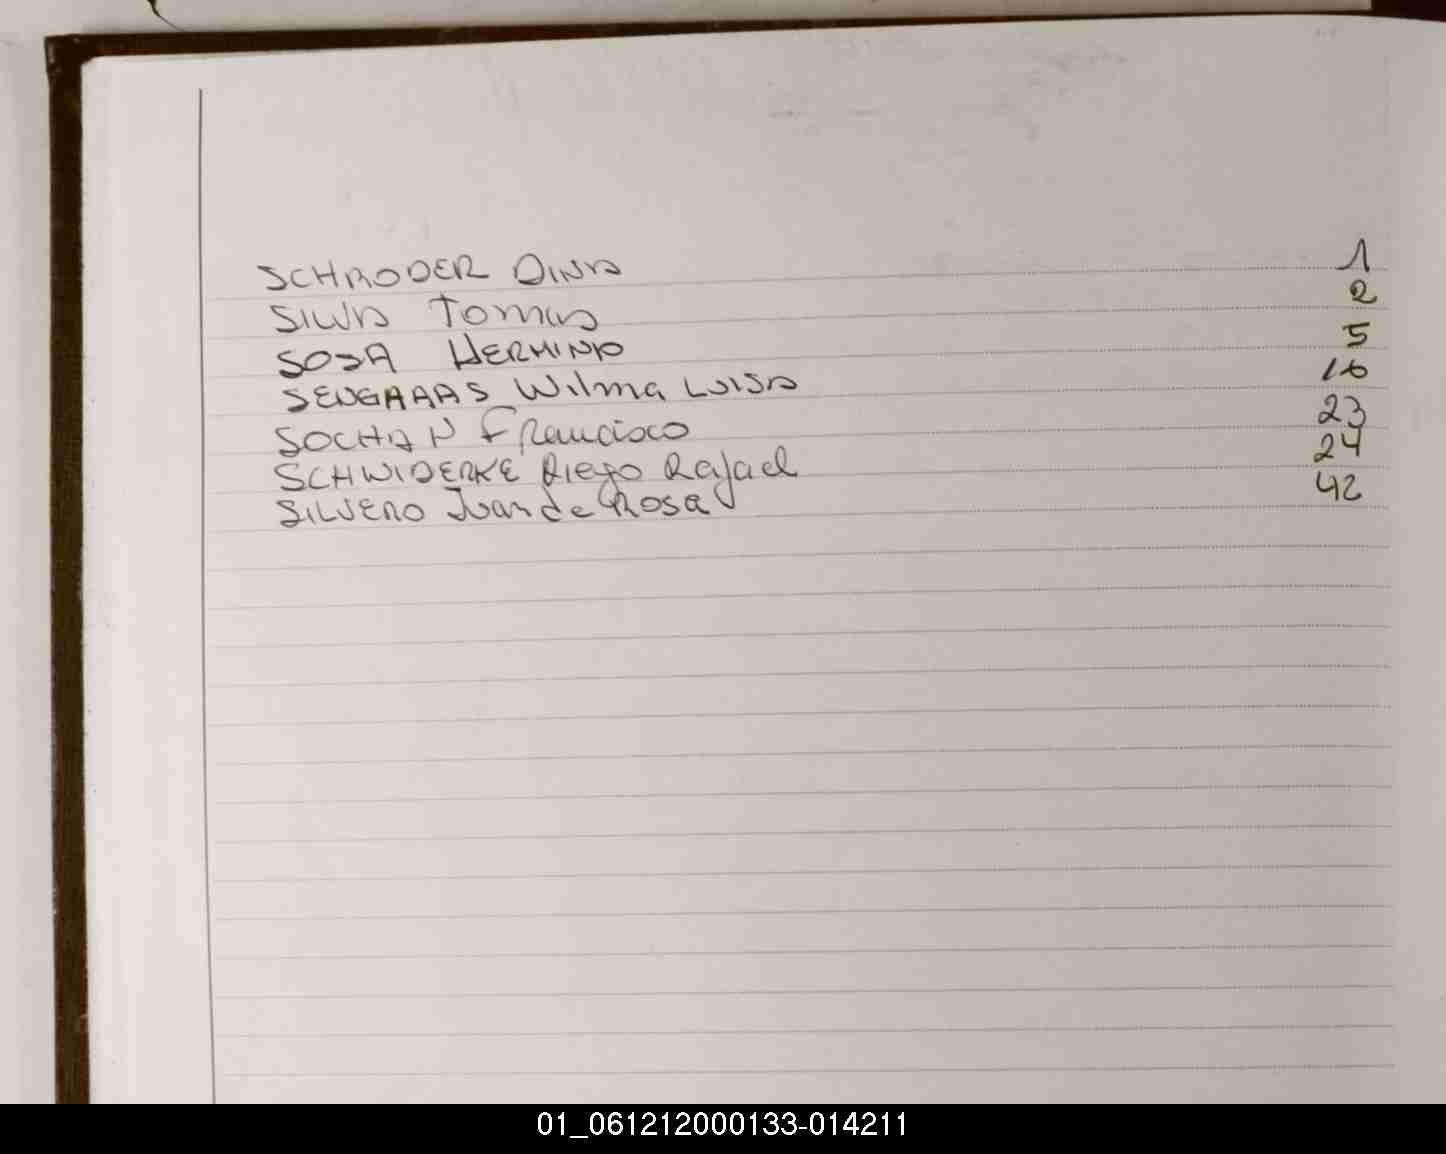 SCHRODER DINA 1
SILVA Tomas 2
SOSA HERMINIO 5
SENGAAAS Wilma LUISA 16
SOCHAN Francisco 23
SCHWIDERKE Diego Rafael 24
SILVERO Juan de Rosa 42
01_061212000133-014211